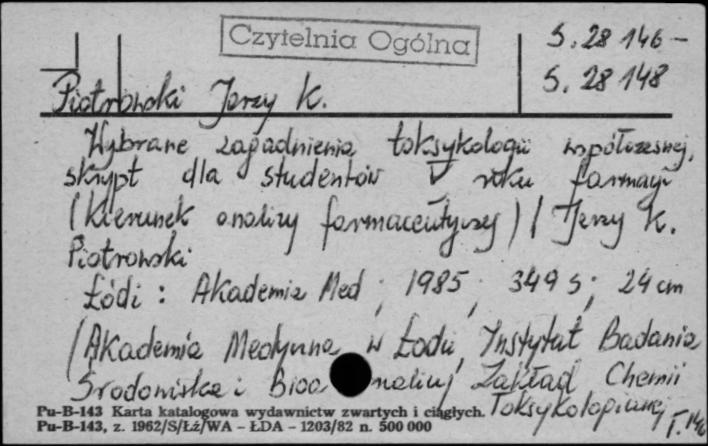 Czytelnia Ogólna
S. 28 146 -
S. 28 148
Piotrowski Jerzy K.
Wybrane zagadnienia toksykologii współczesnej,
skrypt dla studentów V roku farmacji
(kierunek analizy farmaceutyczej) / Jerzy K.
Piotrowski
Łódź : Akademia Med ; 1985 ; 349 s ; 24 cm
(Akademia Medyczna w Łodzi, Instytut Badania
Środowiska i Bioanalizy Zakład Chemii
Toksykologicznej
Pu-B-143 Karta katalogowa wydawnictw zwartych i ciągłych.
Pu-B-143, z. 1962/S/Łż/WA - ŁDA - 1203/82 n. 500 000